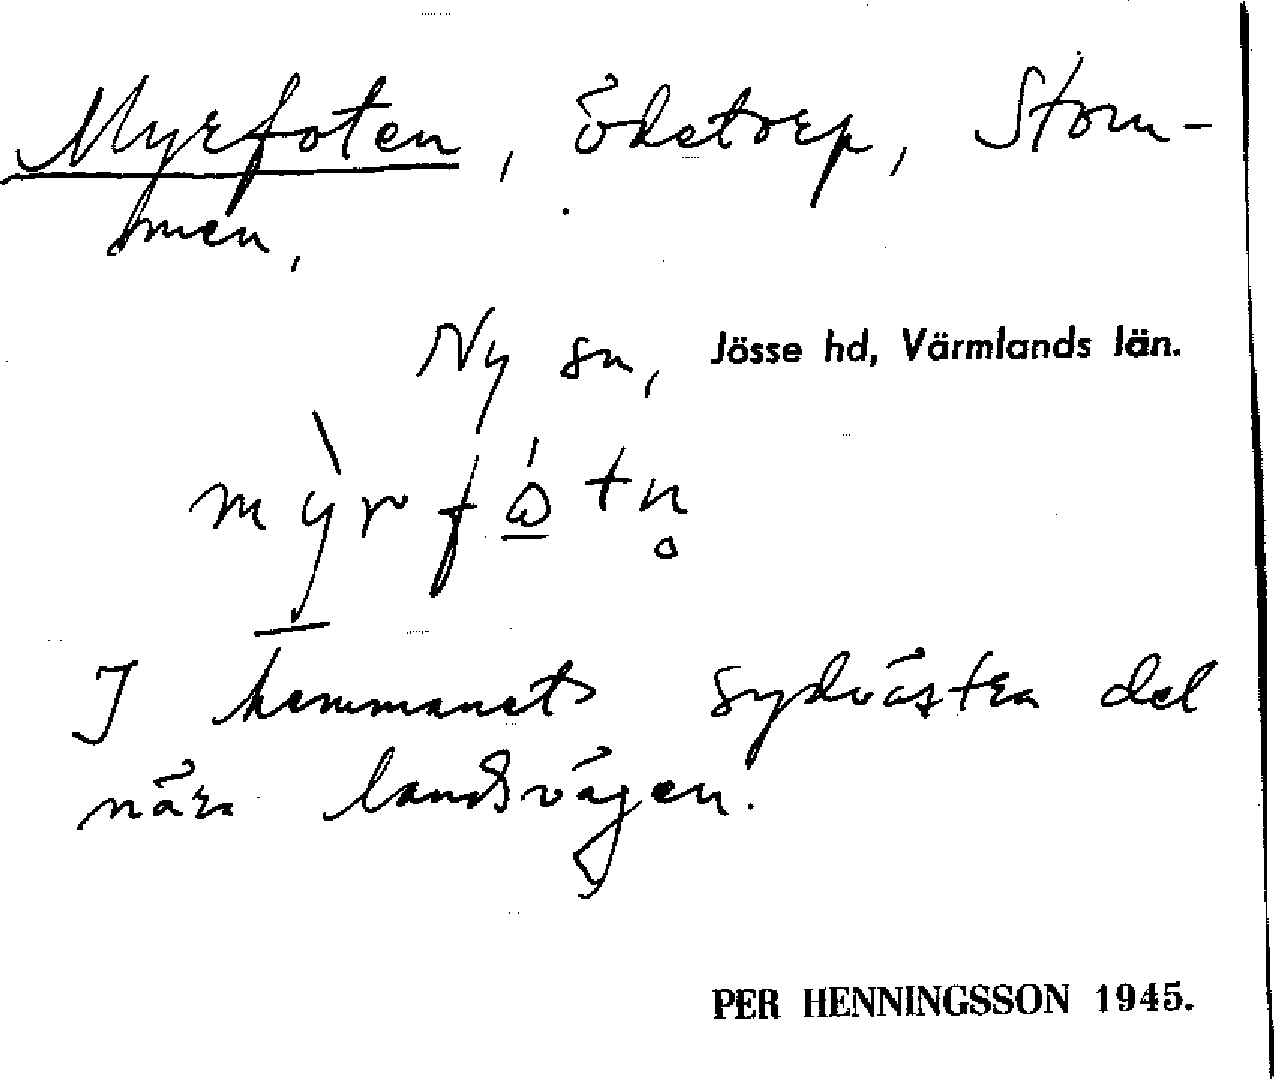 Myrfoten, ödetorp, Stom-
men,
Ny sn, Jösse hd, Värmlands län.
mỳ̲rfώ̲tn̥
I hemmanets sydvästra del
nära landsvägen.
PER HENNINGSSON 1945.